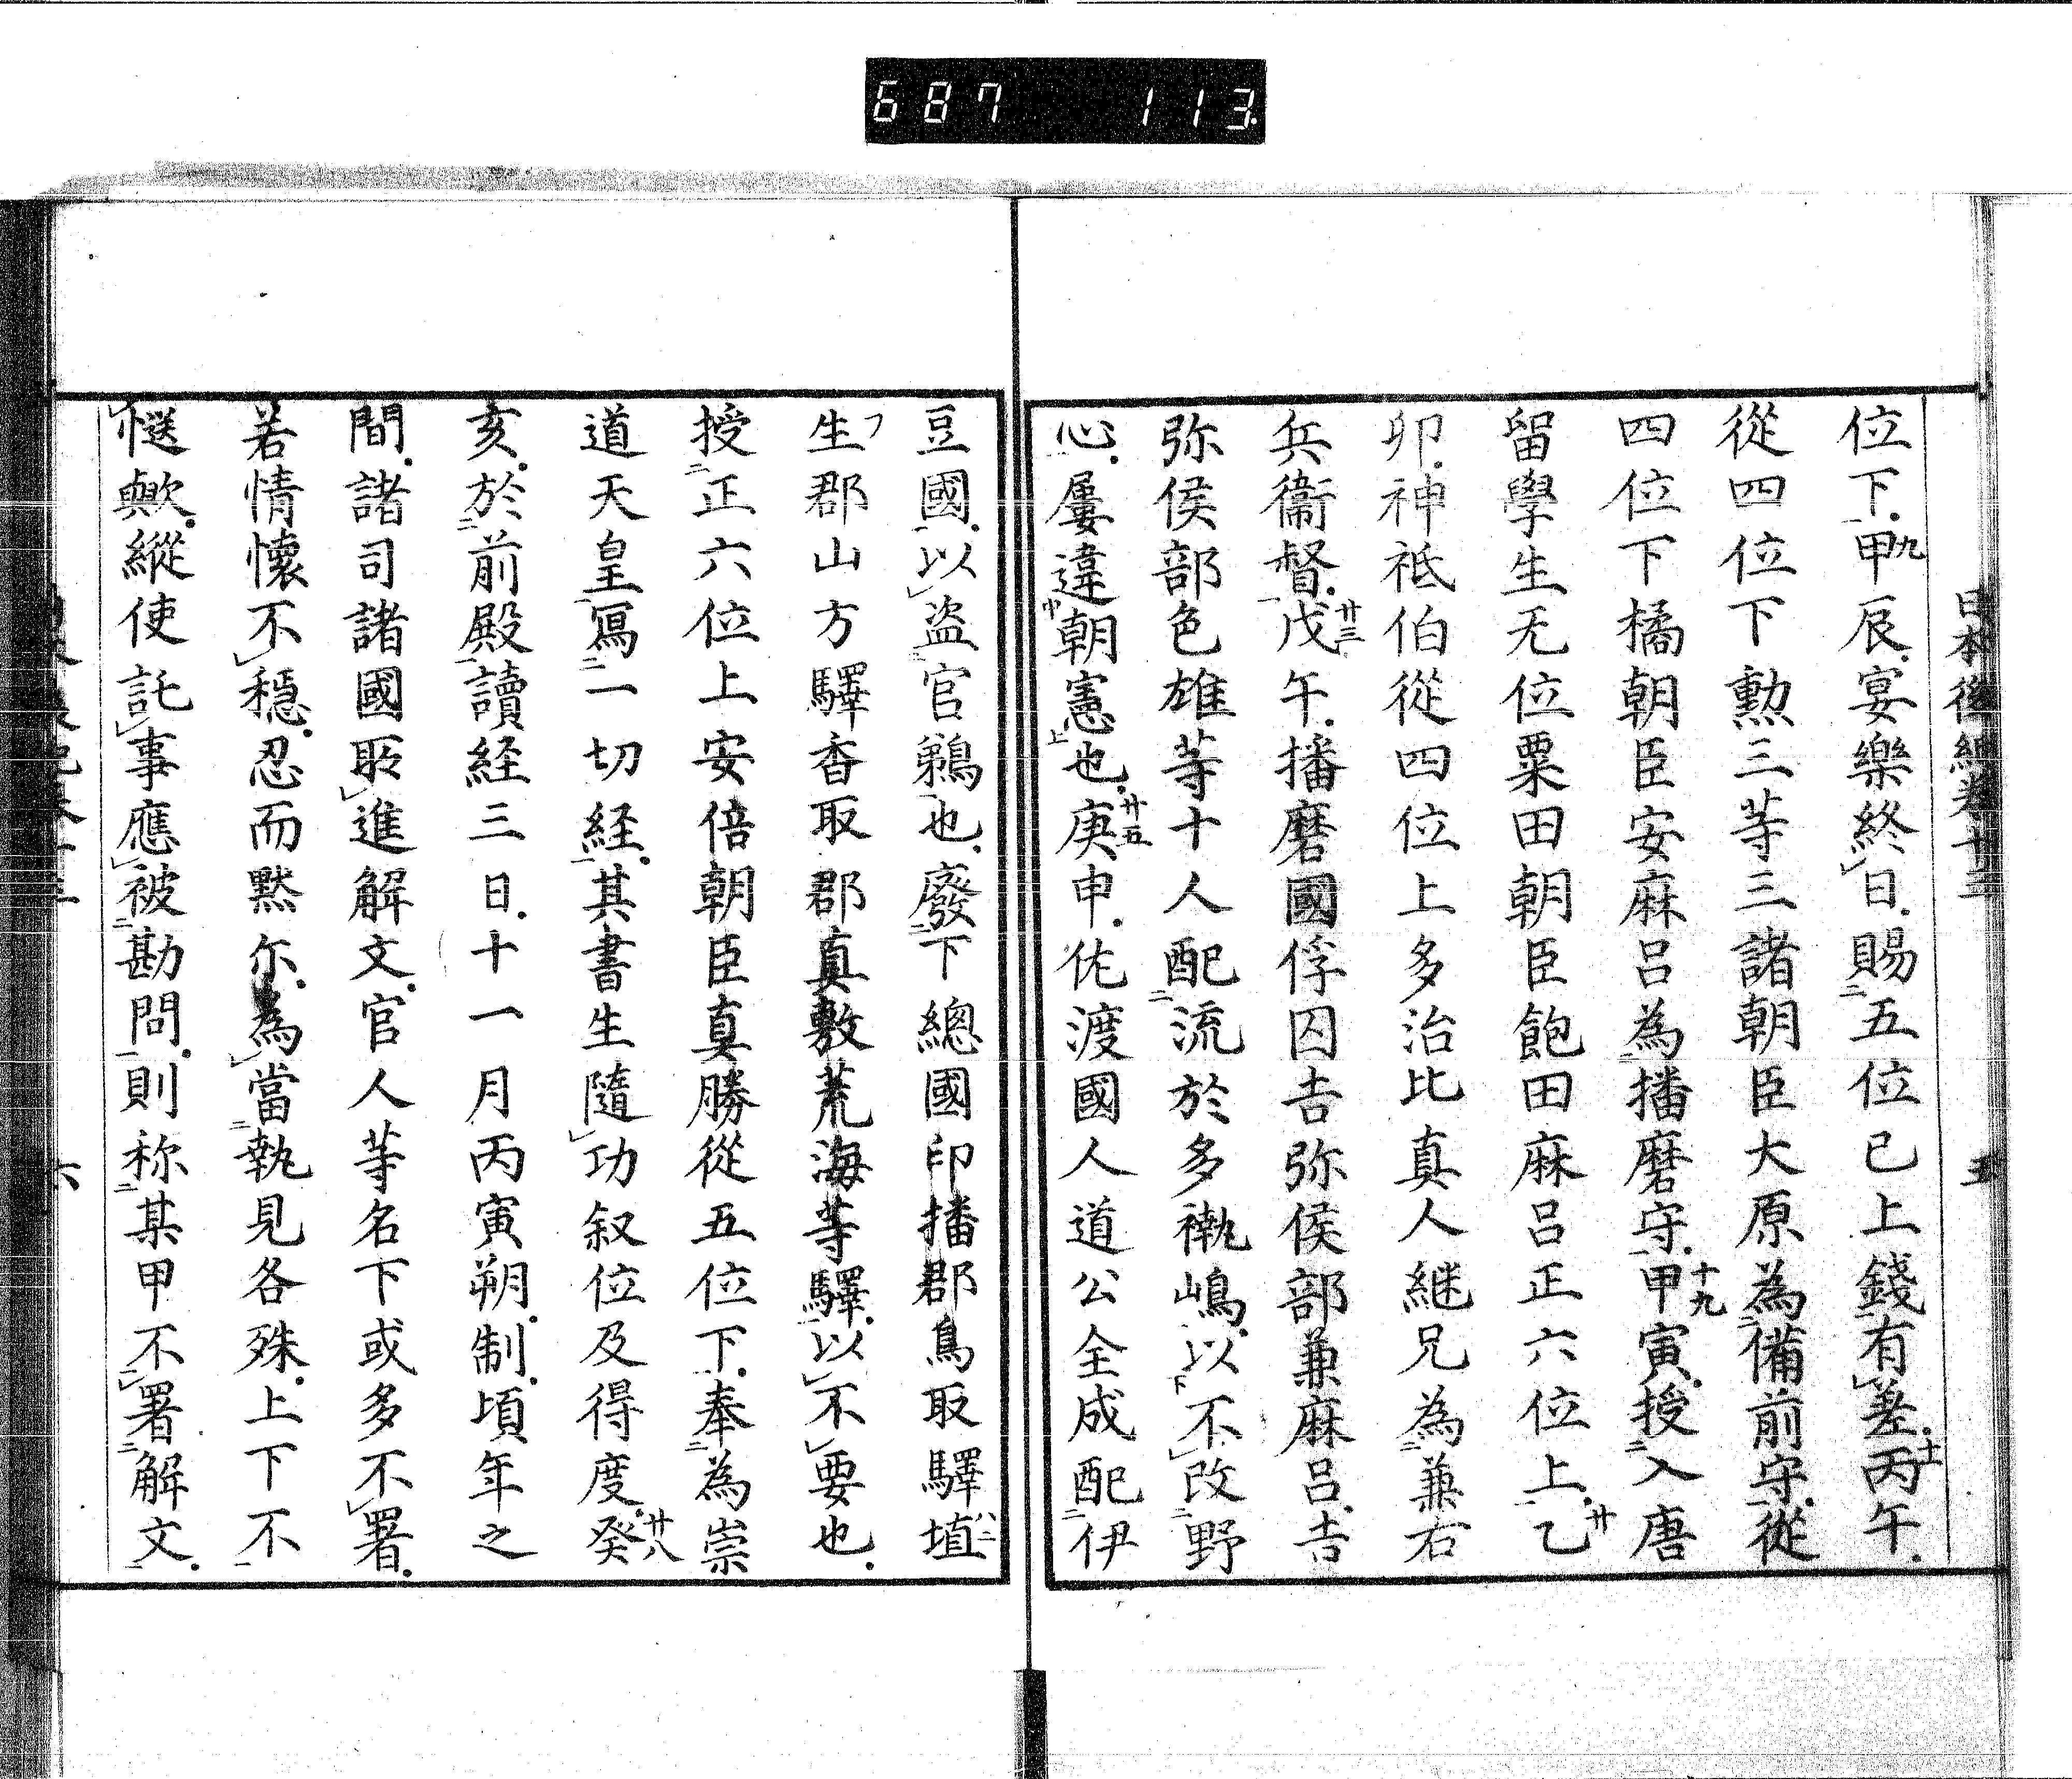 687 113
日本後紀卷十三 五
位下甲辰宴樂終日賜五位已上錢有差丙午
從四位下勲三等三諸朝臣大原為備前守從
四位下橘朝臣安麻呂為播磨守甲寅授入唐
留學生无位粟田朝臣飽田麻呂正六位上乙
卯神祇伯從四位上多治比真人継兄為兼右
兵衞督戊午播磨國俘囚吉弥侯部兼麻呂吉
弥侯部色雄等十人配流於多褹嶋以不改野
心屢違朝憲也庚申佐渡國人道公全成配伊
豆國以盗官鵜也廢下總國印播郡鳥取驛埴
生郡山方驛香取郡真敷荒海等驛以不要也
授正六位上安倍朝臣真勝從五位下奉為崇
道天皇寫一切経其書生隨功叙位及得度癸
亥於前殿讀経三日十一月丙寅朔制頃年之
間諸司諸國所進解文官人等名下或多不署
若情懷不穩忍而黙尓為當執見各殊上下不
愜歟縱使託事應被勘問則称某甲不署解文
六